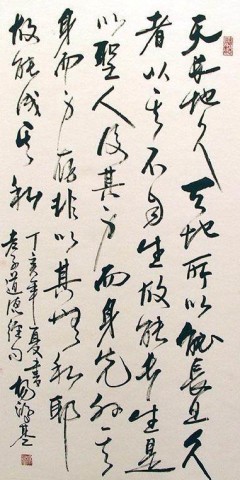 天長地久天地所以能長且久
者以其不自生故能長生是
以聖人後其身而身先外其
身而身存非以其無私耶
故能成其私
丁亥年夏書 楊基
老子道德經句